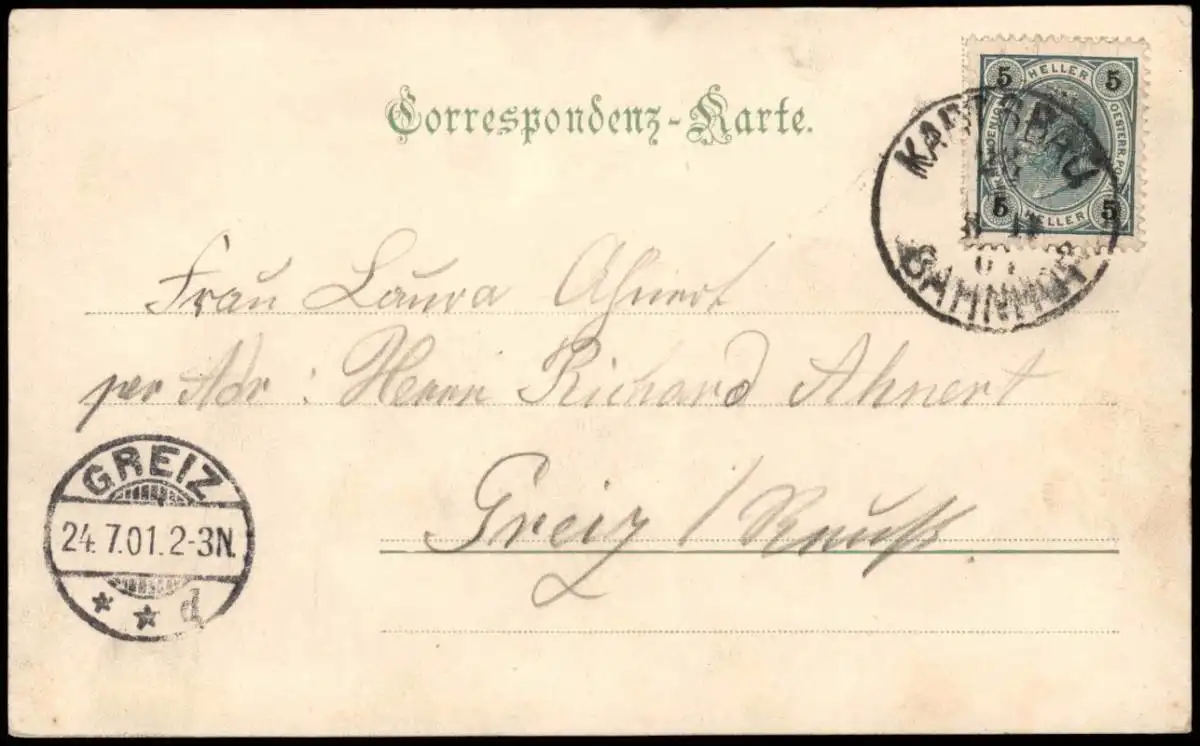 Correspondenz-Karte.
5 HELLER 5
OESTERR. PO
5 HELLER 5
KARLSBAD
BAHNHOF
Frau Laura Ahnert
per Adr: Herrn Richard Ahnert
Greiz / Reuß
GREIZ
24.7.01.2-3N.
* * d